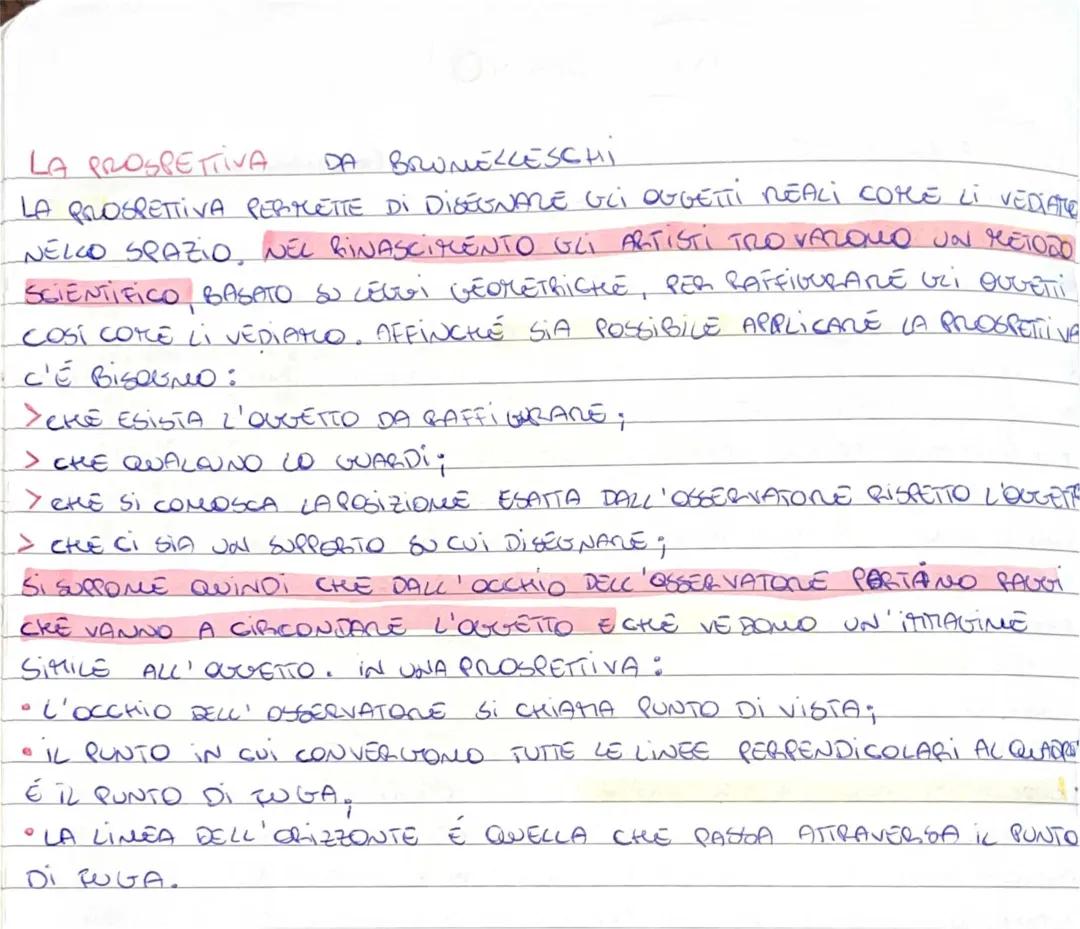 LA PROSPETTIVA DA BRUNELLESCHI
LA PROSPETTIVA PERMETTE DI DISEGNARE GLI OGGETTI REALI COME LI VEDIAMO
NELLO SPAZIO. NEL RINASCIMENTO GLI ARTISTI TROVARONO UN METODO
SCIENTIFICO, BASATO SU LEGGI GEOMETRICHE, PER RAFFIGURARE GLI OGGETTI
COSÍ COME LI VEDIAMO. AFFINCHÉ SIA POSSIBILE APPLICARE LA PROSPETTIVA
C'É BISOGNO:
> CHE ESISTA L'OGGETTO DA RAFFIGURARE;
> CHE QUALCUNO LO GUARDI;
> CHE SI CONOSCA LA POSIZIONE ESATTA DALL'OSSERVATORE RISPETTO L'OGGETT
> CHE CI SIA UN SUPPORTO SU CUI DISEGNARE;
SI SUPPONE QUINDI CHE DALL'OCCHIO DELL'OSSERVATORE PARTANO RAGGI
CHE VANNO A CIRCONDARE L'OGGETTO E CHE VEDONO UN'IMMAGINE
SIMILE ALL'OGGETTO. IN UNA PROSPETTIVA:
• L'OCCHIO DELL'OSSERVATORE SI CHIAMA PUNTO DI VISTA;
• IL PUNTO IN CUI CONVERGONO TUTTE LE LINEE PERPENDICOLARI AL QUADRO
É IL PUNTO DI FUGA;
• LA LINEA DELL'ORIZZONTE É QUELLA CHE PASSA ATTRAVERSA IL PUNTO
DI FUGA.